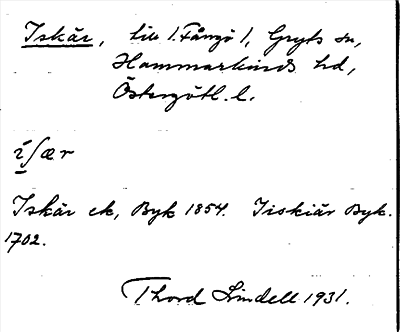 Iskär, till Fångö, Gryts sn,
Hammarkinds hd,
Östergötl. l.
íʃær
Iskär ek, Byk 1854. Jiskiär Byk.
1702.
Thord Lindell 1931.